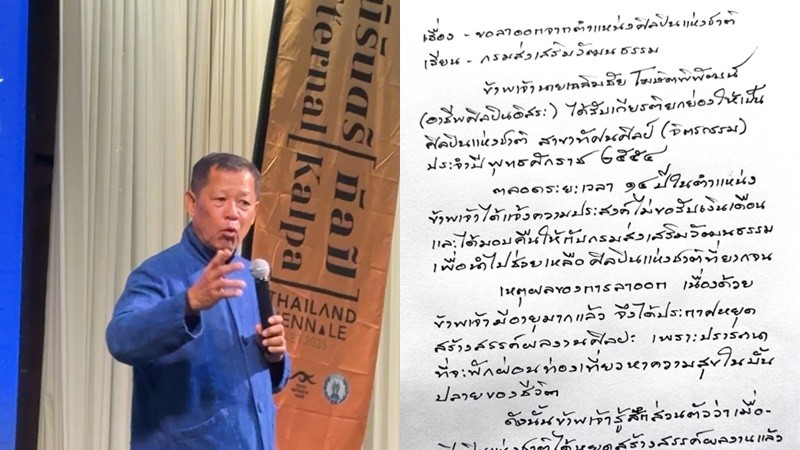 นิรันดร์ กัลป์
Eternal Kalpa
THAILAND
BIENNALE
2025
เรื่อง - ขอลาออกจากตำแหน่งศิลปินแห่งชาติ
เรียน - กรมส่งเสริมวัฒนธรรม
ข้าพเจ้านายเฉลิมชัย โฆษิตพิพัฒน์
(อาชีพศิลปินอิสระ) ได้รับเกียรติยกย่องให้เป็น
ศิลปินแห่งชาติ สาขาทัศนศิลป์ (จิตรกรรม)
ประจำปี พุทธศักราช ๒๕๕๔
ตลอดระยะเวลา ๑๔ ปีในตำแหน่ง
ข้าพเจ้าได้แจ้งความประสงค์ไม่ขอรับเงินเดือน
และได้มอบคืนให้กับกรมส่งเสริมวัฒนธรรม
เพื่อนำไปช่วยเหลือศิลปินแห่งชาติที่ยากจน
เหตุผลของการลาออก เนื่องด้วย
ข้าพเจ้ามีอายุมากแล้ว จึงได้ประกาศหยุด
สร้างสรรค์ผลงานศิลปะ เพราะปรารถนา
ที่จะพักผ่อนท่องเที่ยวหาความสุขในบั้น
ปลายของชีวิต
ดังนั้นข้าพเจ้ารู้สึกส่วนตัวว่าเมื่อ-
ศิลปินแห่งชาติได้หยุดสร้างสรรค์ผลงานแล้ว